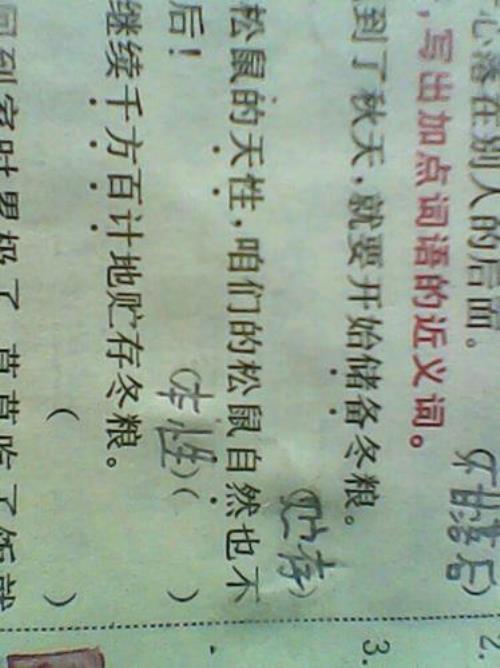 心落在别人的后面。
(不甘落后)
，写出加点词语的近义词。
到了秋天，就要开始储备冬粮。
(贮存)
松鼠的天性，咱们的松鼠自然也不
后！
(本性)( )
继续千方百计地贮存冬粮。
( )
回到家时累极了，草草吃了饭就
2.
3.